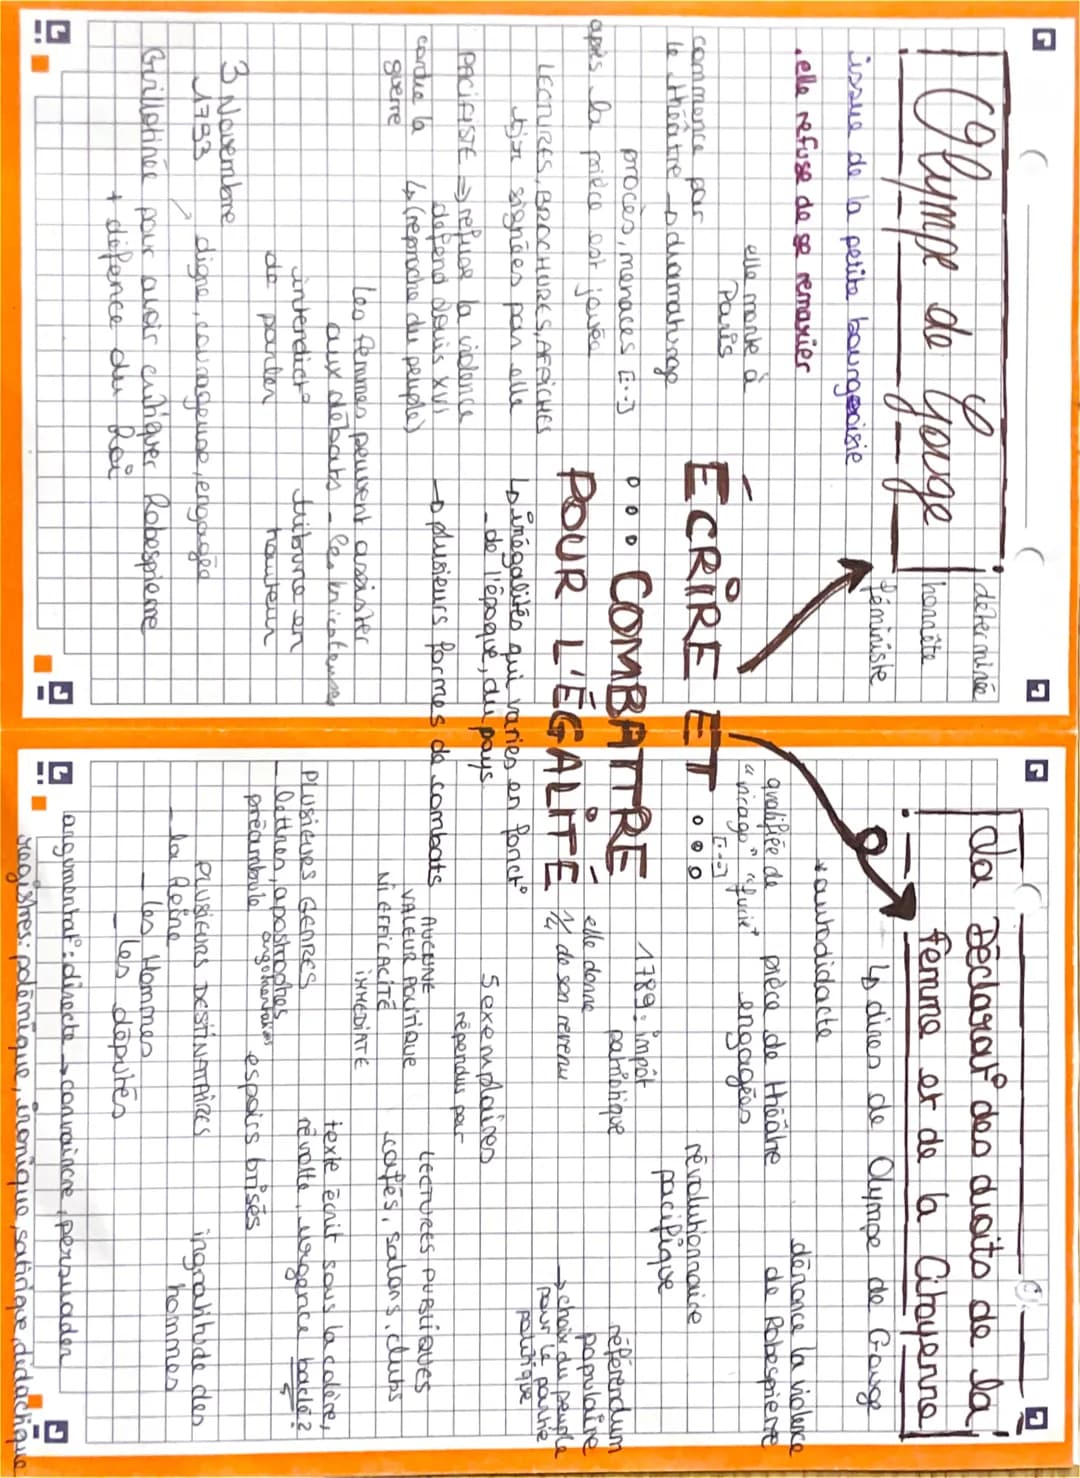 Olympe de Gouge
déterminée
honnête
féministe
issue de la petite bourgeoisie
. elle refuse de se remarier
elle monte à
Paris
commence par
le théâtre → dramaturge
procès, menaces [...]
après la pièce est jouée
LECTURES, BROCHURES, AFFICHES
signées par elle
PACIFISTE => refuse la violence
défend Louis XVI
↳ (reproche du peuple)
guerre
Les femmes peuvent assister
aux débats - les tricoteuses
interdict°
de parler
tribune en
hauteur
3 Novembre
1793
digne, courageuse, engagée
Guillotinée pour avoir critiquer Robespierre
+ défence du Roi
ÉCRIRE ET ...
... COMBATTRE
POUR L'ÉGALITÉ
↳ inégalités qui varies en fonct°
- de l'époque, du pays.
→ plusieurs formes de combats
La Déclarat° des droits de la
femme et de la Citoyenne
↳ dires de Olympe de Gouge
* autodidacte
dénonce la violence
de Robespierre
qualifiée de
"virago" "furie"
[...]
pièce de théâtre
engagées
révolutionnaire
pacifique
1789 : impôt
patriotique
elle donne
1/4 de son revenu
référendum
populaire
→ choix du peuple
pour la partie
politique
5 exemplaires
répendus par
AUCUNE
VALEUR POLITIQUE
NI EFFICACITÉ
IMMEDIATE
LECTURES PUBLIQUES
cafés, salons, clubs
PLUSIEURS GENRES
lettres, apostrophes,
préambule argumentaires
texte écrit sous la colère,
révolte, urgence baclé ?
espoirs brisés
PLUSIEURS DESTINATAIRES
- la Reine
- les Hommes
- les députés
ingratitude des
hommes
argumentat° : directe → convaincre, persuader
registres : polémique, ironique, satirique, didactique